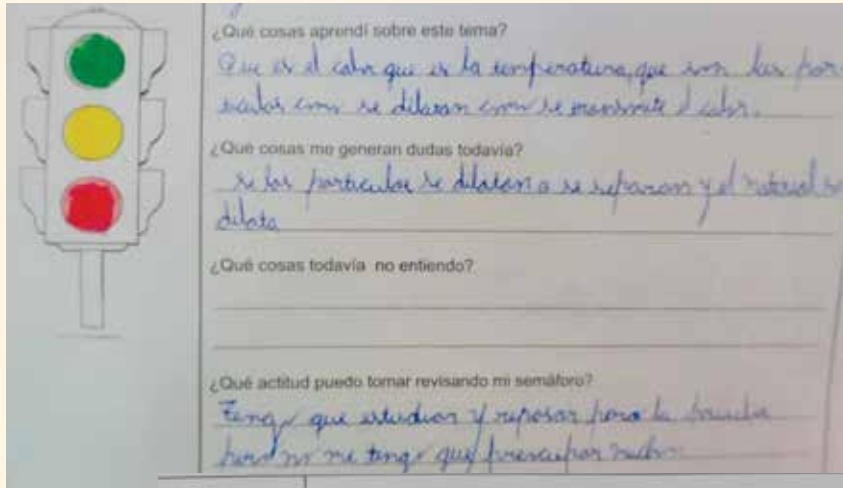 ¿Qué cosas aprendí sobre este tema?
Que es el calor que es la temperatura, que son las par
ticulas como se dilatan como se transmite el calor.
¿Qué cosas me generan dudas todavía?
si las particulas se dilatan o se separan y el material se
dilata
¿Qué cosas todavía no entiendo?
¿Qué actitud puedo tomar revisando mi semáforo?
Tengo que estudiar y repasar para la prueba
pero no me tengo que preocupar mucho